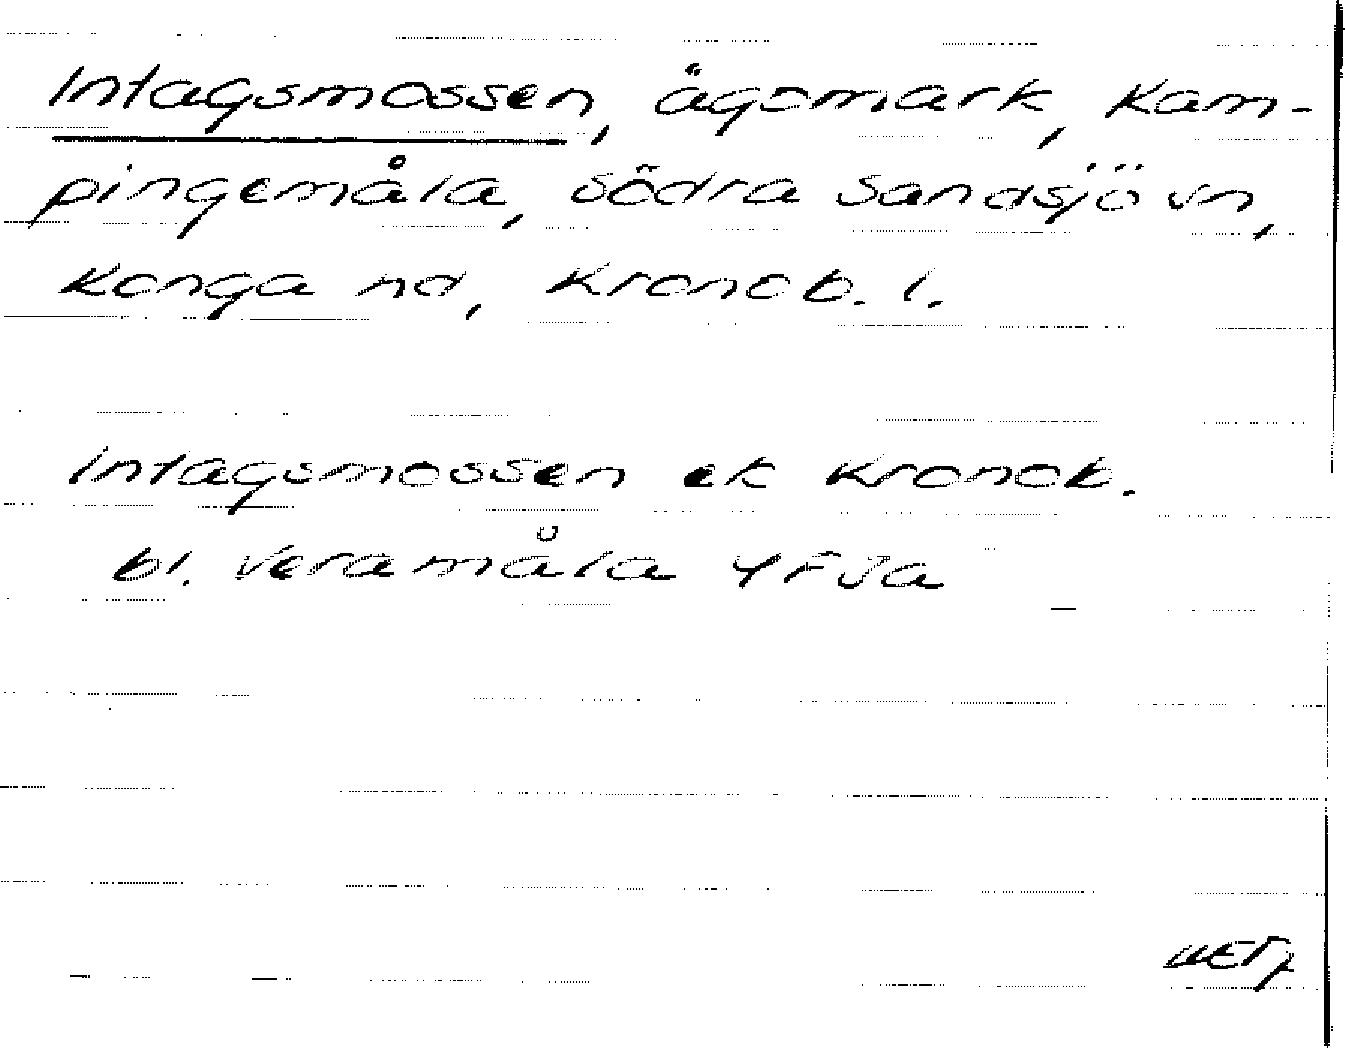 Intagsmossen, ägomark, Kam-
pingemåla, södra Sandsjö vn,
Konga hd, Kronob. l.
Intagsmossen ek Kronob.
bl. Veramåla